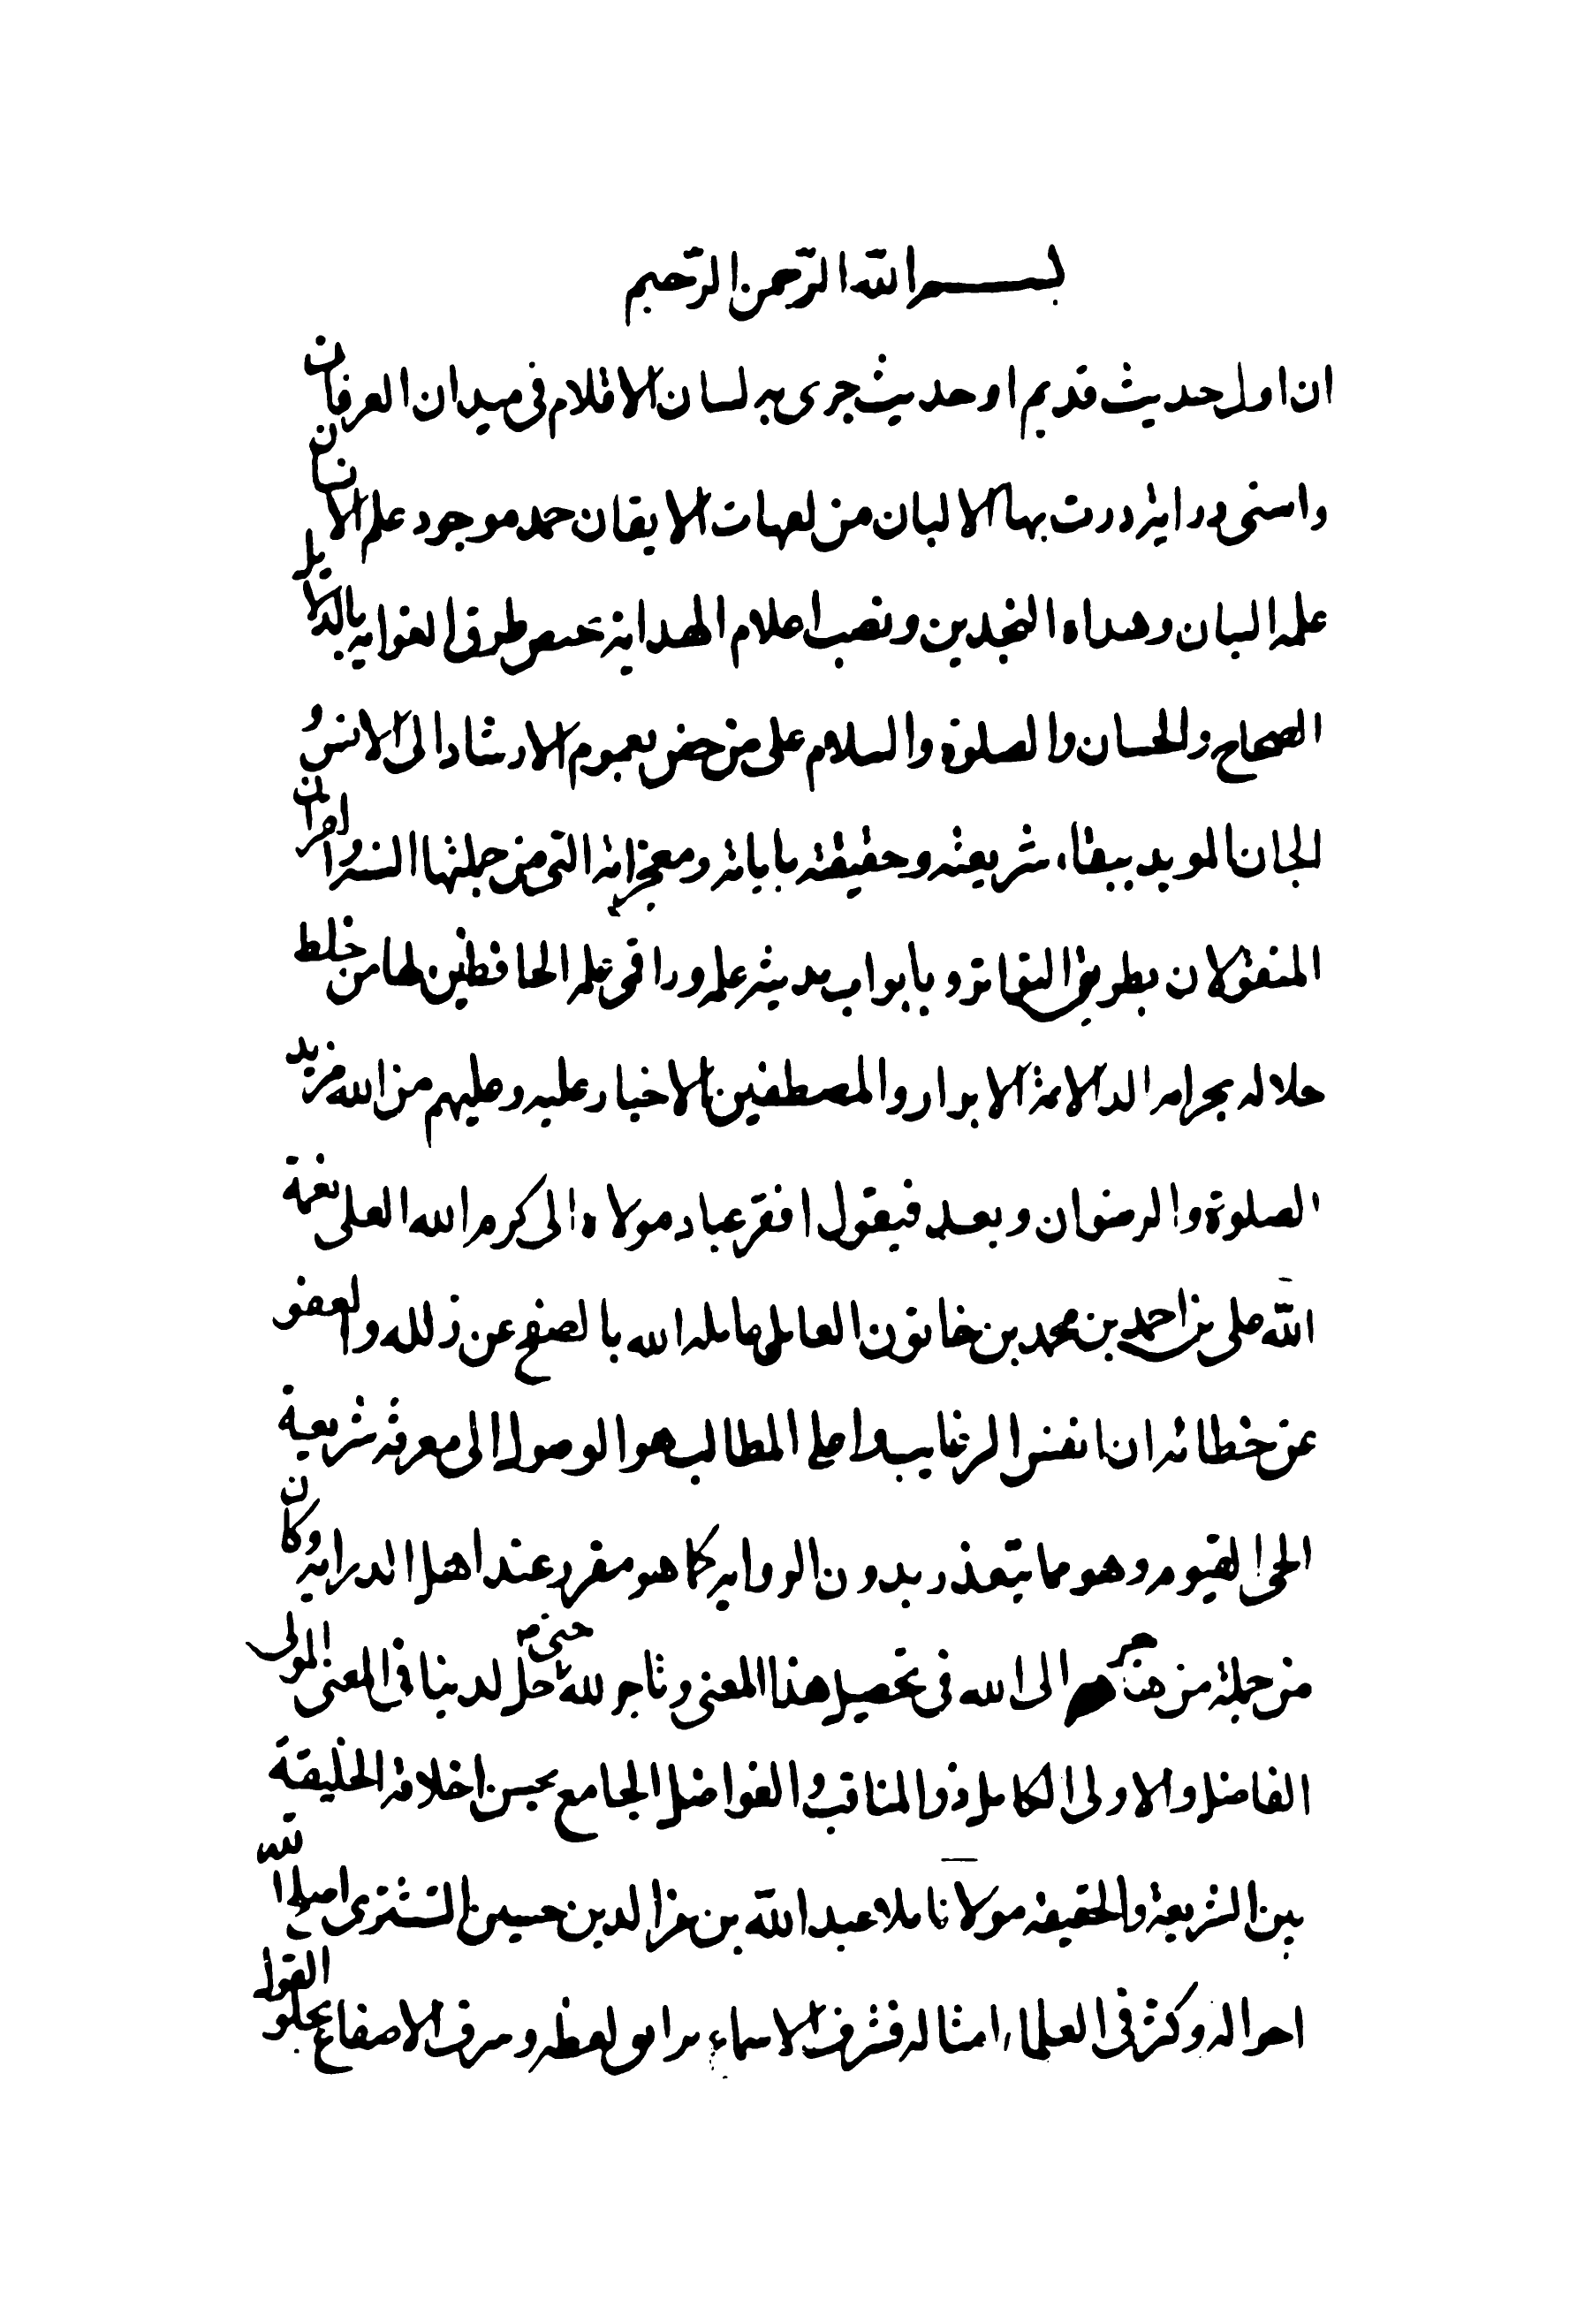 بسم الله الرّحمن الرّحيم
ان اول حديث قديم او حديث جرى به لسان الاقلام فى ميدان العرفان
واسنى دراية درت بها الالبان من لعهات الايقان حمد موجود علم الانسان
علمه البيان وهداه النجدين ونصب اعلام الهداية طرق الغواية بالدلايل
الصحاح والحسان والصلوة والسلام على من خص بعموم الارشاد الى الانس و
الجان المويد ببقاء شريعته وحقيقته باياته ومعجزاته التى من جملتها السنة والقرآن
المنقولان بطريق التواتر وبابواب مدينة علمه ورا الحافظين لها من خلط
حلاله بحرامه اله الائمة الابرار والمصطفين الاخيار عليه وعليهم من الله مزيد
الصلوة والرضوان وبعد فيقول افقر عباد مولاه الى كرم الله العلى نعمة
الله على بن احمد بن محمد بن خاتون العاملى عامله الله بالصفح عن زلله والعفو
عن خطائه ان انفس الرغايب واعلى المطالب هو الوصول الى معرفة شريعة
الحى القيوم وهو مما يتعذر بدون الرواية كما هو مقرر عند اهل الدراية وكان
من جملة من الى الله فى تحصيل هذا المعنى وتاجر لله حتى حل لدينا فى المعنى المولى
الفاضل والاولى الكامل ذو المناقب والفواضل الجامع بحسن اخلاقه الخليقة
بين الشريعة والحقيقة مولانا ملا عبد الله بن عز الدين حسين التسترى اصلح الله
احواله وكثر فى العلماء امثاله فشرف الاسماء لفظه وشرف الاصقاع بحلو القول